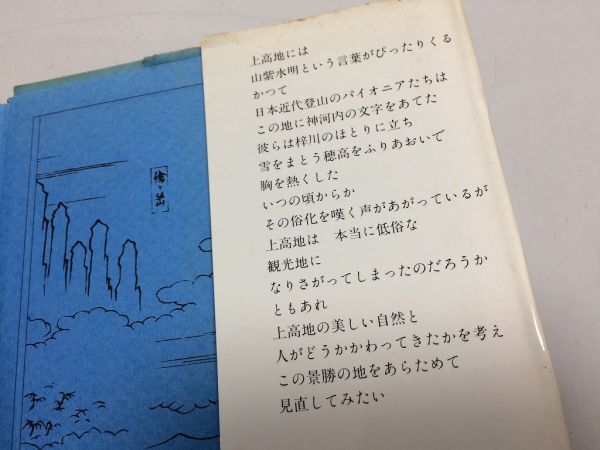 上高地には
山紫水明という言葉がぴったりくる
かつて
日本近代登山のパイオニアたちは
この地に神河内の文字をあてた
彼らは梓川のほとりに立ち
雪をまとう穂高をふりあおいで
胸を熱くした
いつの頃からか
その俗化を嘆く声があがっているが
上高地は　本当に低俗な
観光地に
なりさがってしまったのだろうか
ともあれ
上高地の美しい自然と
人がどうかかわってきたかを考え
この景勝の地をあらためて
見直してみたい